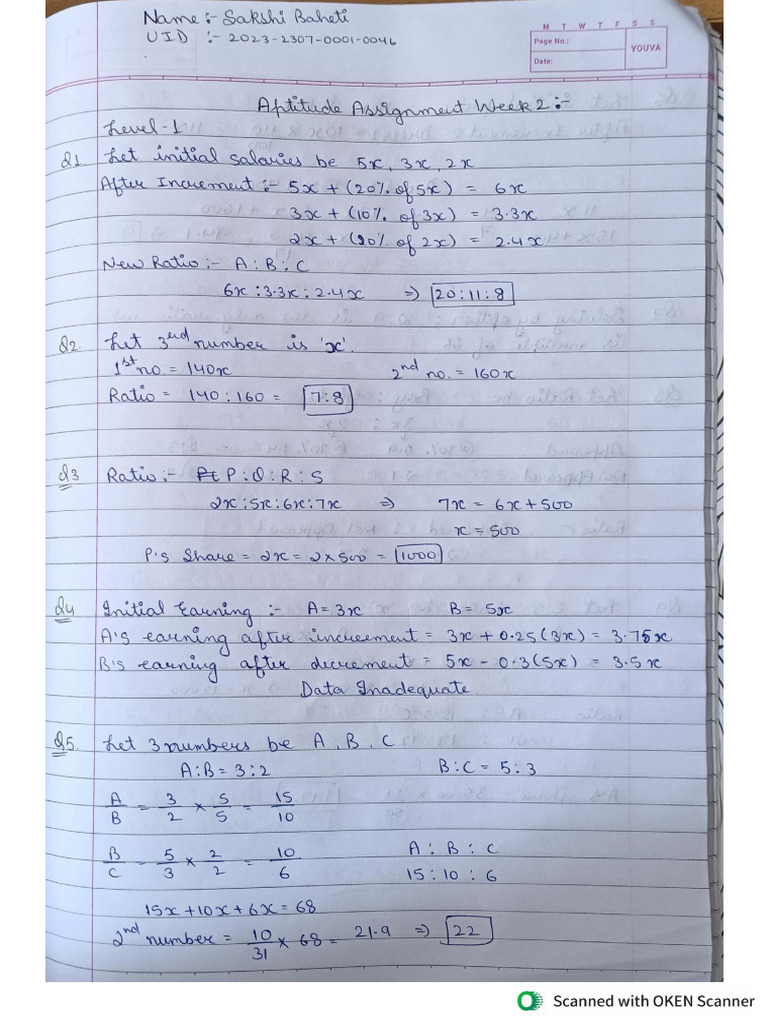 Name:- Sakshi Baheti
UID :- 2023-2307-0001-0046
M T W T F S S
Page No.:
YOUVA
Date:
Aptitude Assignment Week 2:-
Level-1
Q1. Let initial salaries be 5x, 3x, 2x
After Increment:- 5x + (20% of 5x) = 6x
3x + (10% of 3x) = 3.3x
2x + (20% of 2x) = 2.4x
New Ratio:- A : B : C
6x : 3.3x : 2.4x => 20:11:8
Q2. Let 3rd number is 'x'.
1st no. = 140x 2nd no. = 160x
Ratio = 140 : 160 = 7:8
Q3 Ratio:- P : Q : R : S
2x : 5x : 6x : 7x => 7x = 6x + 500
x = 500
P's Share = 2x = 2 x 500 = 1000
Q4 Initial Earning :- A = 3x B = 5x
A's earning after increement = 3x + 0.25(3x) = 3.75x
B's earning after decrement = 5x - 0.3(5x) = 3.5x
Data Inadequate
Q5. Let 3 numbers be A, B, C
A:B = 3:2 B:C = 5:3
A/B = 3/2 x 5/5 = 15/10
B/C = 5/3 x 2/2 = 10/6 A : B : C
15 : 10 : 6
15x + 10x + 6x = 68
2nd number = 10/31 x 68 = 21.9 => 22
Scanned with OKEN Scanner